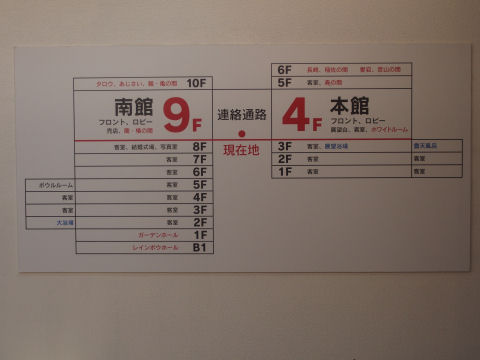 タロウ、あじさい、鶴・亀の間 10F
南館 9F
フロント、ロビー
売店、蘭・椿の間
客室、結婚式場、写真室 8F
客室 7F
客室 6F
ボウルルーム 客室 5F
客室 客室 4F
客室 客室 3F
大浴場 客室 2F
ガーデンホール 1F
レインボウホール B1
連絡通路
現在地
6F 長崎、稲佐の間 雲山の間
5F 客室、寿の間
4F 本館
フロント、ロビー
展望台、客室、ホワイトルーム
3F 客室、展望浴場 露天風呂
2F 客室
1F 客室